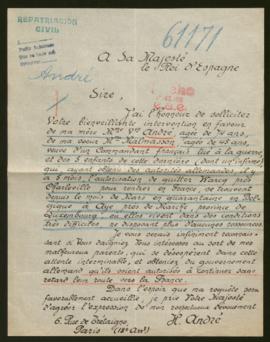 REPATRIACIÓN
CIVIL
61171
André
A Sa Majesté
le Roi d'Espagne
Sire,
J'ai l'honneur de solliciter
Votre bienveillante intervention en faveur
de ma mère Mme Vve André, agée de 74 ans,
de ma soeur Mme Malmasson, agée de 45 ans,
veuve d'un Commandant français tué à la guerre
et des 5 enfants de cette dernière (dont un infirme)
qui ayant obtenu des autorités allemandes, il y
a 5 mois, l'autorisation de quitter Warcq près
Charleville pour rentrer en France, se trouvent
depuis le mois de Mars en quarantaine en Bel-
gique à près de province de
Luxembourg où elles vivent dans des conditions
très difficiles ne disposant plus d'aucunes ressources.
Je vous serais infiniment reconnaissant,
Sire, si Vous daigniez Vous intéresser au sort de mes
malheureux parents, qui se désespèrent dans cette
attente interminable, et obtenir du gouvernement
allemand qu'ils soient autorisés à continuer sans
retard leur route vers la France.
Dans l'espoir que ma requête sera
favorablement accueillie, je prie Votre Majesté
d'agréer l'expression de mon respectueux dévouement
H. André
6, Rue de Tretaigne
Paris (18e Arrt)